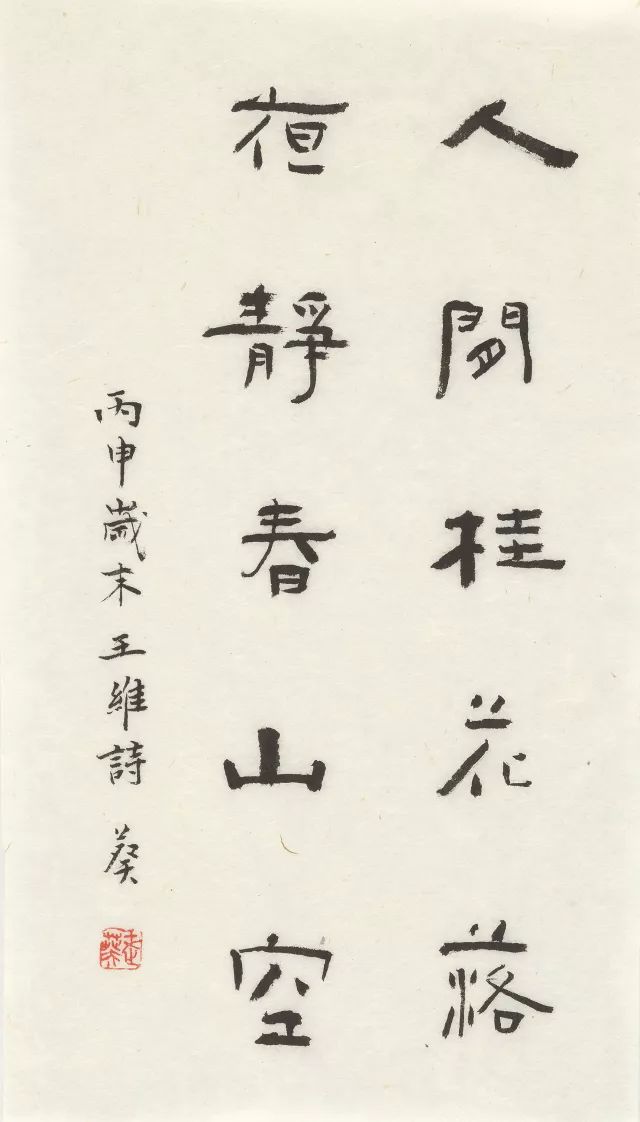 人閒桂花落
夜靜春山空
丙申歲末王維詩 葵